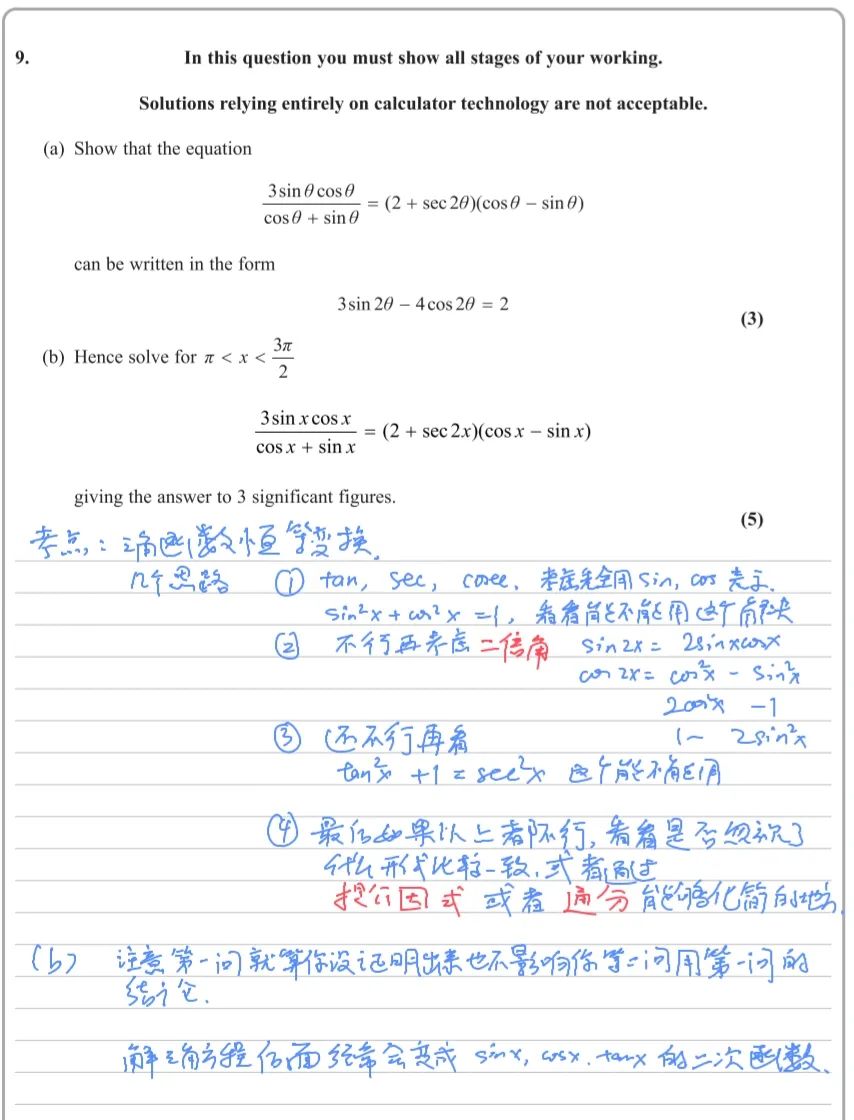 9. In this question you must show all stages of your working.
Solutions relying entirely on calculator technology are not acceptable.
(a) Show that the equation
3 sin θ cos θ / (cos θ + sin θ) = (2 + sec 2θ)(cos θ − sin θ)
can be written in the form
3 sin 2θ − 4 cos 2θ = 2
(3)
(b) Hence solve for π < x < 3π/2
3 sin x cos x / (cos x + sin x) = (2 + sec 2x)(cos x − sin x)
giving the answer to 3 significant figures.
(5)
考点：三角函数恒等变换.
几个思路 ① tan, sec, cosec. 考虑先全用 sin, cos 表示.
sin²x + cos²x = 1, 看看能不能用这个解决
② 不行再考虑二倍角 sin 2x = 2sinxcosx
cos 2x = cos²x − sin²x
2cos²x − 1
1 − 2sin²x
③ 还不行再看
tan²x + 1 = sec²x 这个能不能用
④ 最后如果以上都不行, 看看是否忽视了
什么形式比较一致, 或者通过
提公因式 或者 通分 能够化简的地方.
(b) 注意第一问就算你没证明出来也不影响你第二问用第一问的
结论.
解三角方程后面经常会变成 sinx, cosx. tanx 的二次函数.